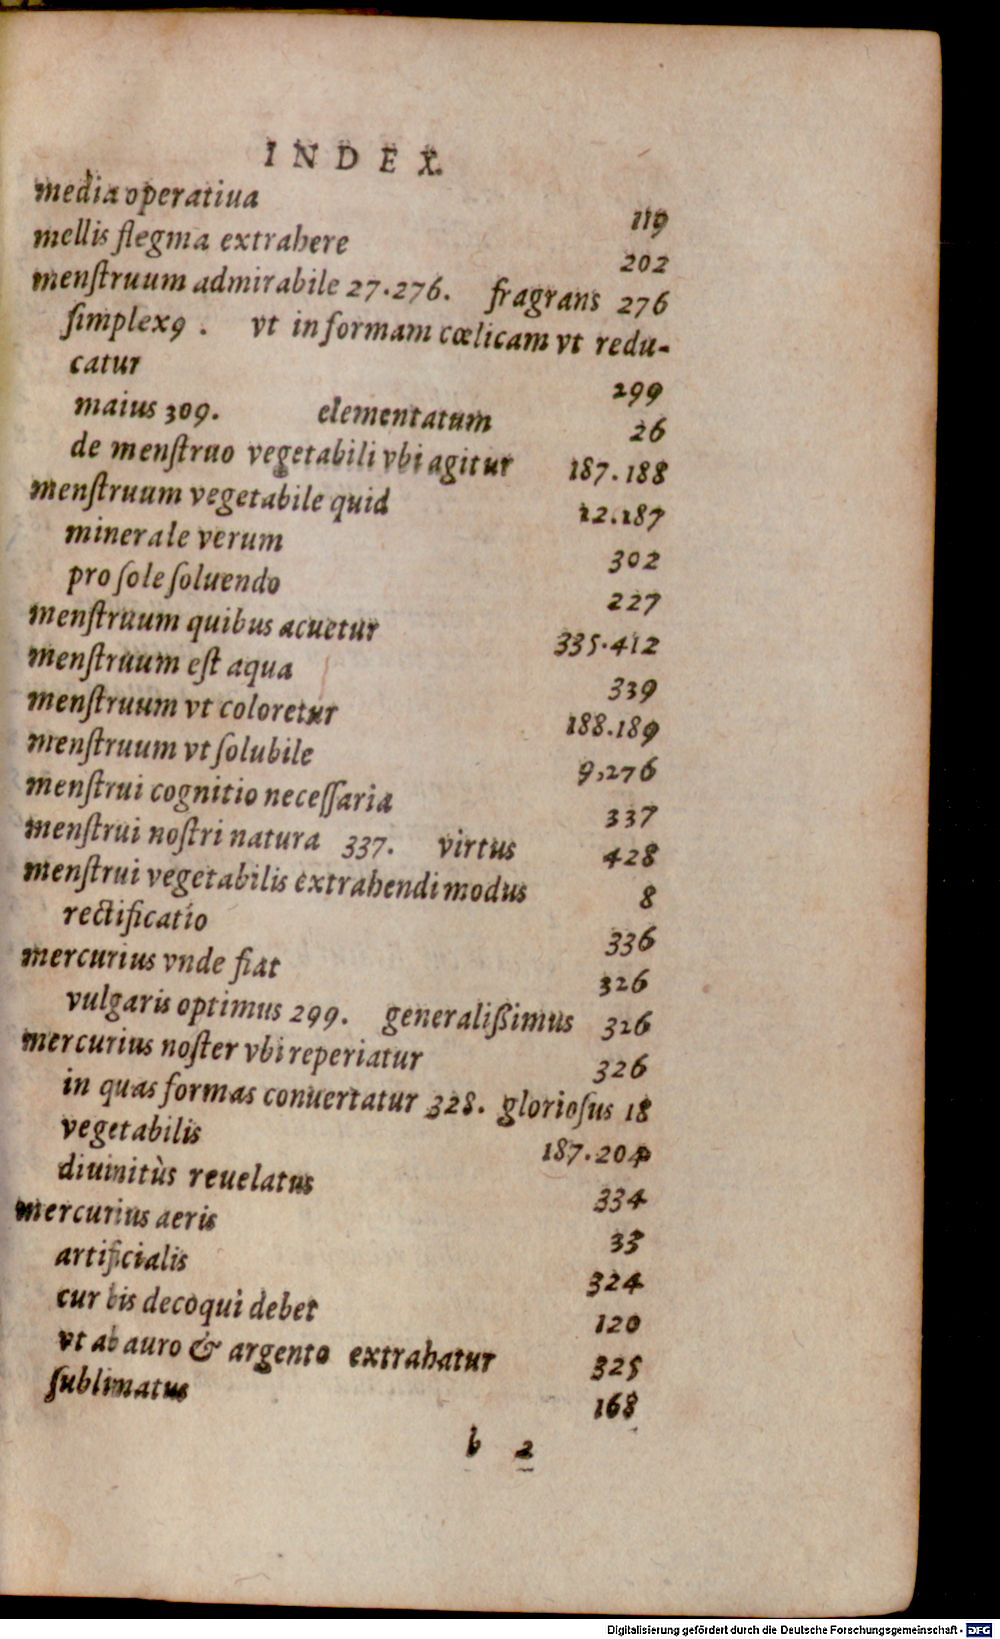 INDEX.
media operatiua 119
mellis flegma extrahere 202
menſtruum admirabile 27.276. fragrans 276
ſimplex 9. vt in formam cœlicam vt redu-
catur 299
maius 309. elementatum 26
de menſtruo vegetabili vbi agitur 187.188
menſtruum vegetabile quid 12.187
minerale verum 302
pro ſole ſoluendo 227
menſtruum quibus acuetur 335.412
menſtruum eſt aqua 339
menſtruum vt coloretur 188.189
menſtruum vt ſolubile 9,276
menſtrui cognitio neceſſaria 337
menſtrui noſtri natura 337. virtus 428
menſtrui vegetabilis extrahendi modus 8
rectificatio 336
mercurius vnde fiat 326
vulgaris optimus 299. generalißimus 326
mercurius noſter vbi reperiatur 326
in quas formas conuertatur 328. glorioſus 18
vegetabilis 187.204
diuinitùs reuelatus 334
mercurius aeris 33
artificialis 324
cur bis decoqui debet 120
vt ab auro & argento extrahatur 325
ſublimatus 168
b 2
Digitalisierung gefördert durch die Deutsche Forschungsgemeinschaft - DFG